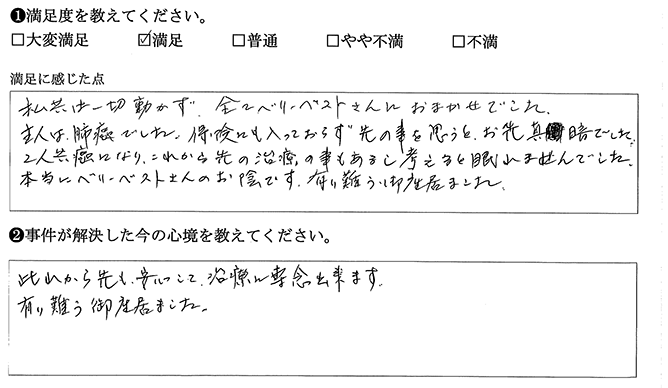 ❶満足度を教えてください。
□大変満足 ☑満足 □普通 □やや不満 □不満
満足に感じた点
私共は一切動かず、全てベリーベストさんにおまかせでした。
主人は、肺癌でした。保険にも入っておらず先の事を思うと、お先真暗でした。
2人共癌になり、これから先の治療の事もあるし考えると眠れませんでした。
本当にベリーベストさんのお陰です。有り難う御座居ました。
❷事件が解決した今の心境を教えてください。
此れから先も、安心して、治療に専念出来ます。
有り難う御座居ました。